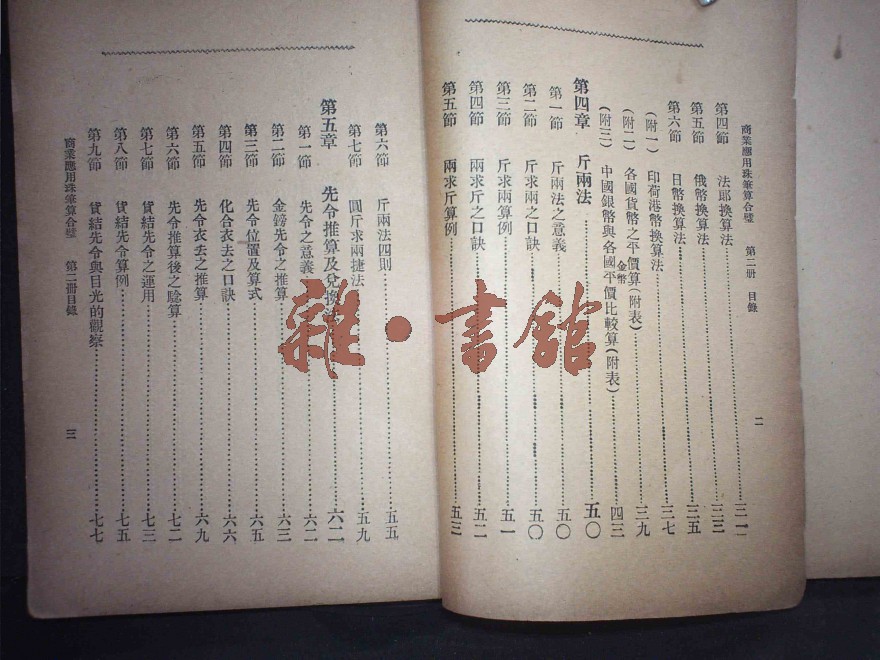 商業應用珠筆算合璧 第二冊 目錄 二
第四節 法郎換算法 三二
第五節 俄幣換算法 三五
第六節 日幣換算法 三七
(附一) 印荷港幣換算法 三九
(附二) 各國貨幣之平價算(附表)
(附三) 中國銀幣與各國金幣平價比較算(附表) 四三
第四章 斤兩法 五〇
第一節 斤兩法之意義 五〇
第二節 斤求兩之口訣 五〇
第三節 斤求兩算例 五一
第四節 兩求斤之口訣 五二
第五節 兩求斤算例 五三
第六節 斤兩法四則 五五
第七節 圓斤求兩捷法 五九
第五章 先令推算及兌換 六二
第一節 先令之意義 六二
第二節 金鎊先令之推算 六三
第三節 先令位置及算式 六五
第四節 化合衣去之口訣 六六
第五節 先令衣去之推算 六九
第六節 先令推算後之唸算 七二
第七節 貨結先令之運用 七三
第八節 貨結先令算例 七五
第九節 貨結先令與目光的觀察 七七
商業應用珠筆算合璧 第二冊目錄 三
雜·書館